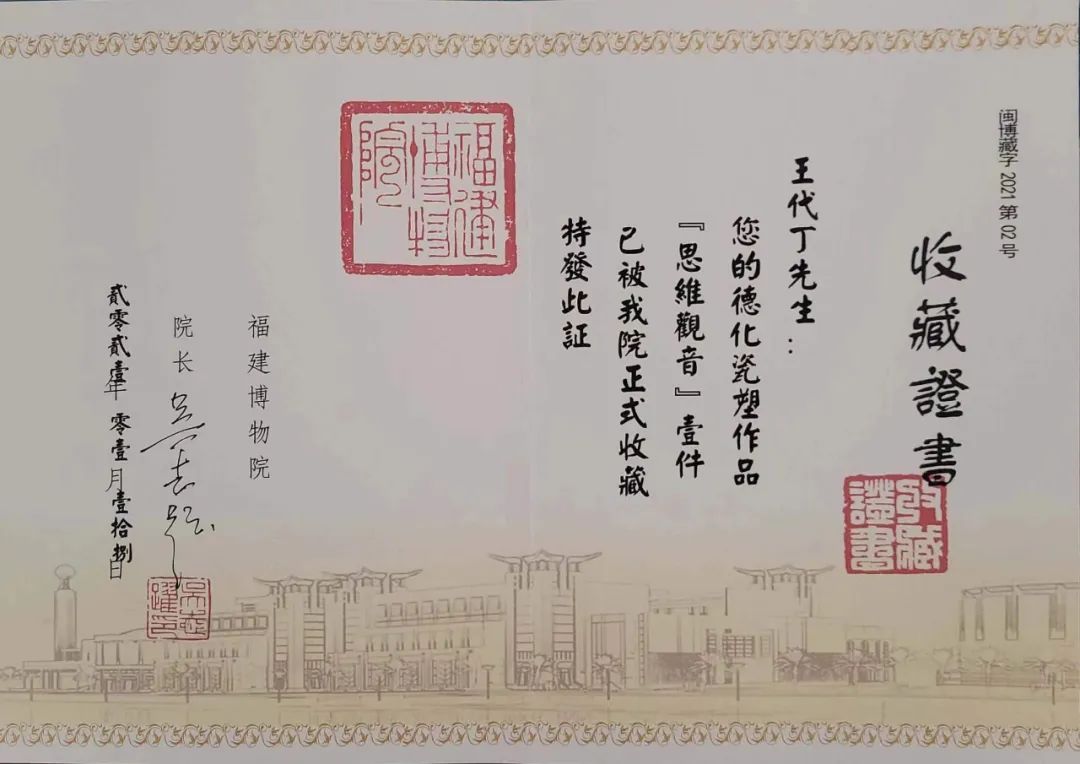 闽博藏字 2021 第 02 号
收藏證書
收藏
證書
王代丁先生：
您的德化瓷塑作品
『思維觀音』壹件
已被我院正式收藏
特發此証
福建
博物
院
福建博物院
院长
吴志跃
貳零貳壹年 零壹月壹拾捌日
吴志
躍印